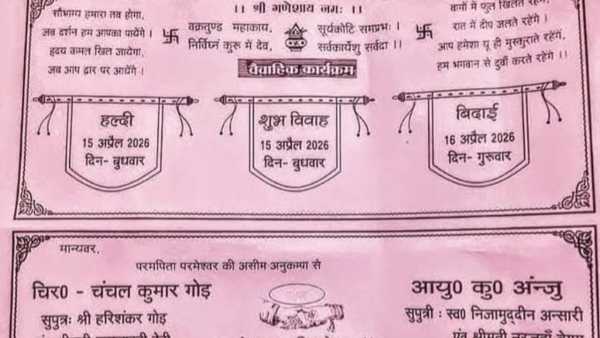 ।। श्री गणेशाय नमः ।।
सौभाग्य हमारा तब होगा,
जब दर्शन हम आपका पायेंगे ।
हृदय कमल खिल जायेगा,
जब आप द्वार पर आयेंगे ।
वक्रतुण्ड महाकाय, सूर्यकोटि समप्रभः ।
निर्विघ्नं कुरू में देव, सर्वकार्येशु सर्वदा ।।
बागों में फुल खिलते रहेंगे,
रात में दीप जलते रहेंगे ।
आप हमेशा यू ही मुस्कुराते रहेंगे,
हम भगवान से दुवाँ करते रहेंगे ।।
वैवाहिक कार्यक्रम
हल्दी
15 अप्रैल 2026
दिन- बुधवार
शुभ विवाह
15 अप्रैल 2026
दिन- बुधवार
बिदाई
16 अप्रैल 2026
दिन- गुरूवार
मान्यवर,
परमपिता परमेश्वर की असीम अनुकम्पा से
चिर0 - चंचल कुमार गोड़
सुपुत्रः श्री हरिशंकर गोड़
आयु0 कु0 अंन्जु
सुपुत्री : स्व0 निजामुद्दीन अन्सारी
एंव श्रीमती